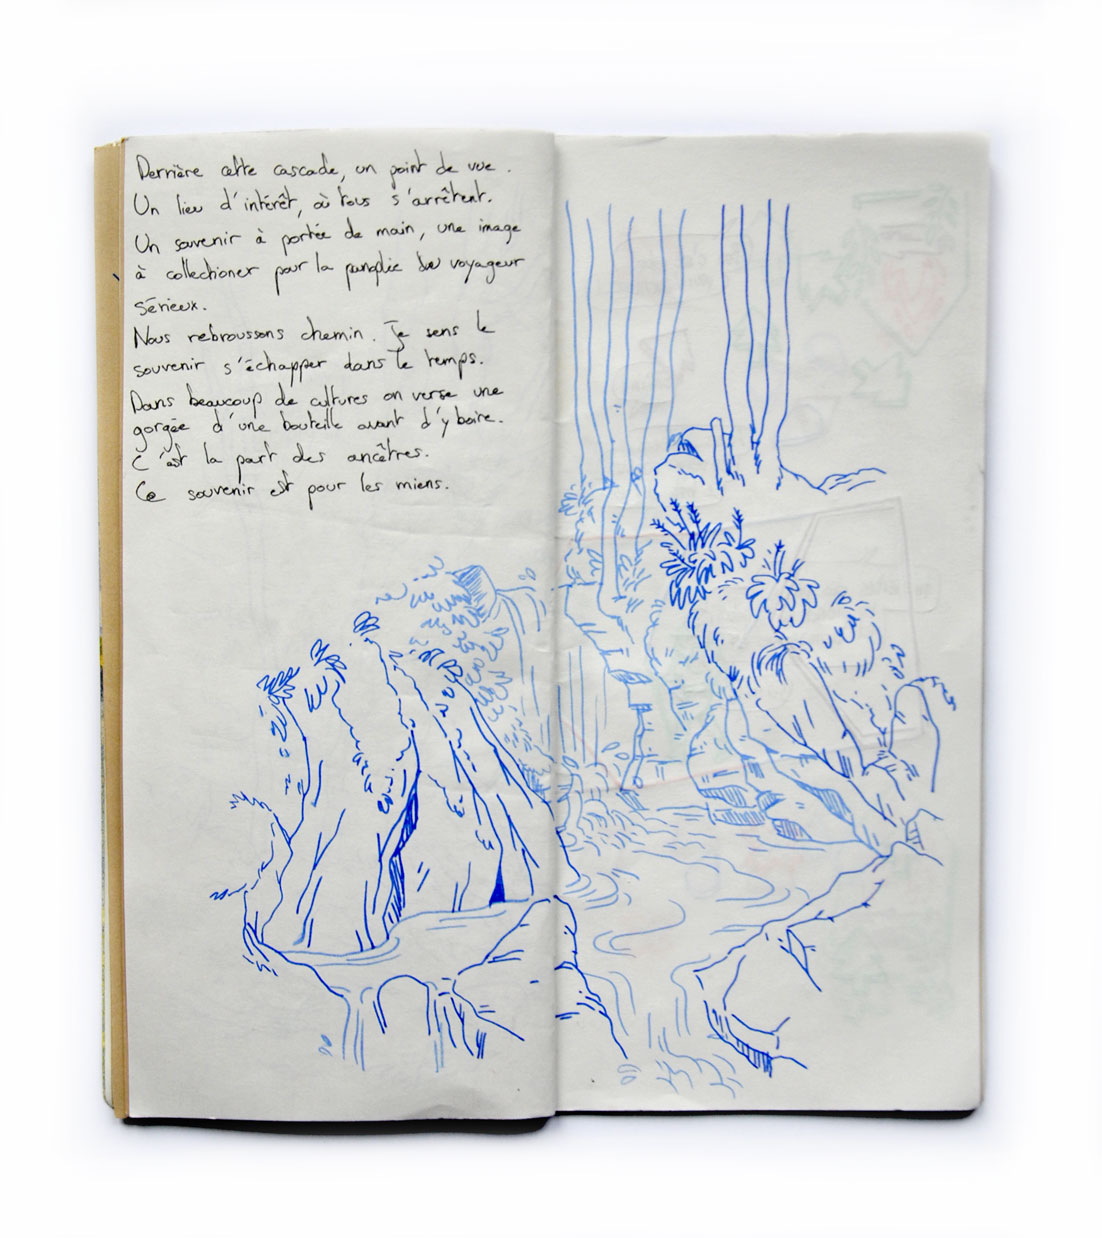 Derrière cette cascade, un point de vue.
Un lieu d'intérêt, où tous s'arrêtent.
Un souvenir à portée de main, une image
à collectioner pour la panoplie du voyageur
sérieux.
Nous rebroussons chemin. Je sens le
souvenir s'échapper dans le temps.
Dans beaucoup de cultures on verse une
gorgée d'une bouteille avant d'y boire.
C'est la part des ancêtres.
Ce souvenir est pour les miens.